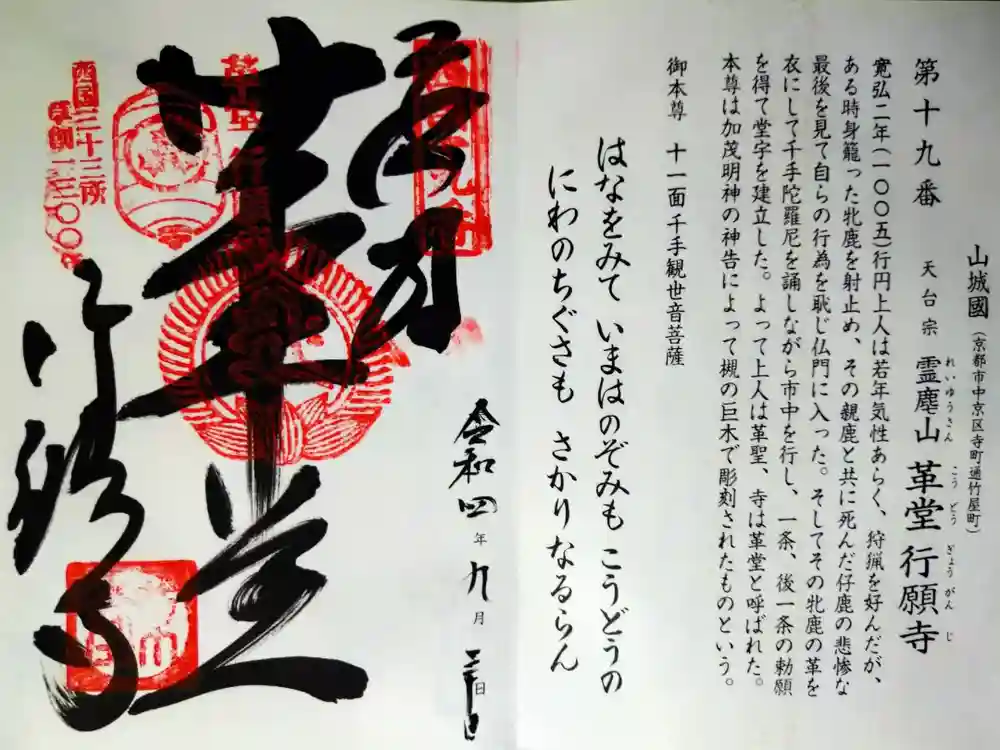 山城國(京都市中京区寺町通竹屋町)
第十九番 天台宗 霊麀山 革堂 行願寺
れいゆうさん こうどう ぎょうがんじ
寛弘二年(一〇〇五)行円上人は若年気性あらく、狩猟を好んだが、
ある時身籠った牝鹿を射止め、その親鹿と共に死んだ仔鹿の悲惨な
最後を見て自らの行為を恥じ仏門に入った。そしてその牝鹿の革を
衣にして千手陀羅尼を誦しながら市中を行し、一条、後一条の勅願
を得て堂宇を建立した。よって上人は革聖、寺は革堂と呼ばれた。
本尊は加茂明神の神告によって槻の巨木で彫刻されたものという。
御本尊 十一面千手観世音菩薩
はなをみて いまはのぞみも こうどうの
にわのちぐさも さかりなるらん
奉拝
革堂
行願寺
令和四年九月
西国三十三所
草創1300年